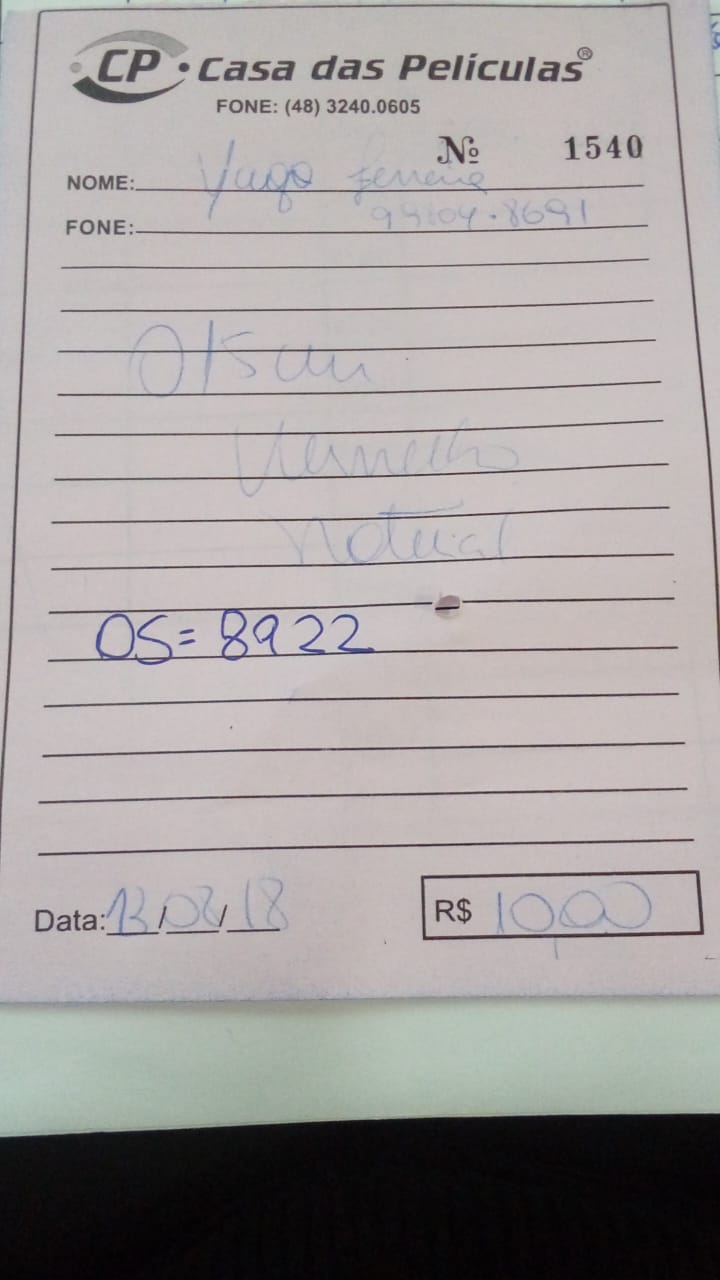 CP • Casa das Películas®
FONE: (48) 3240.0605
Nº 1540
NOME: Yago Ferreira
FONE: 99104.8691
015 cm
Vermelho
Notucal
OS= 8922
Data: 13/08/18
R$ 10,00